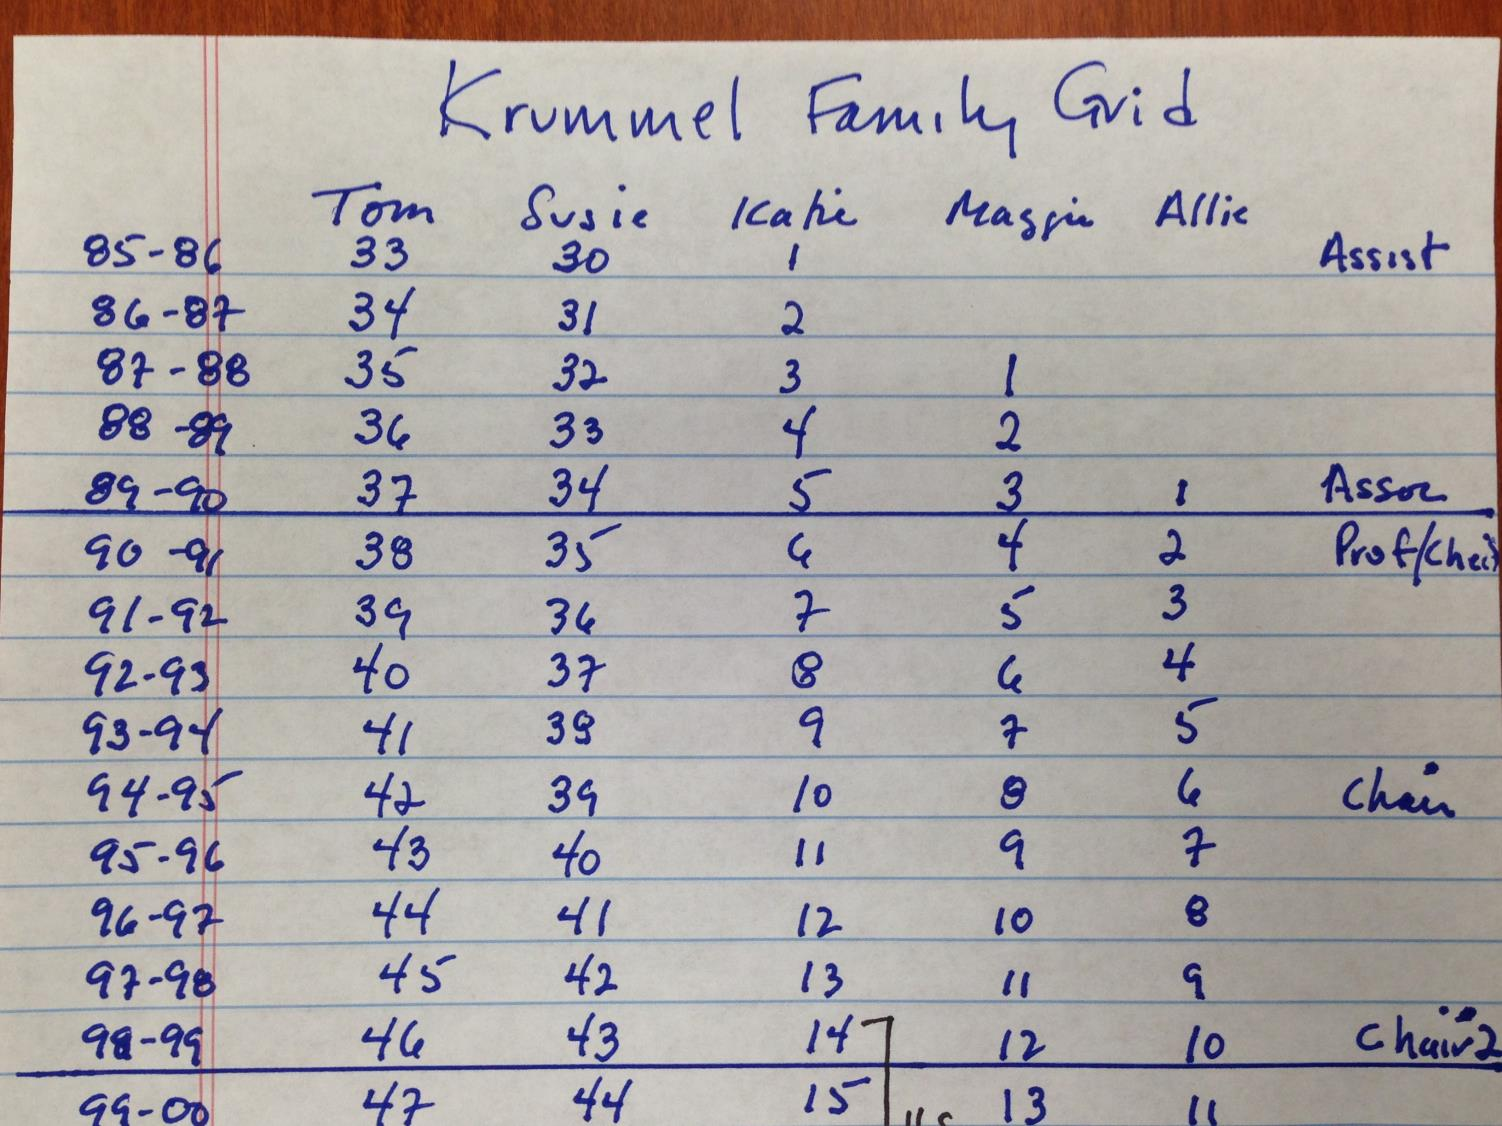 Krummel Family Grid
Tom Susie Katie Maggie Allie
85-86 33 30 1 Assist
86-87 34 31 2
87-88 35 32 3 1
88-89 36 33 4 2
89-90 37 34 5 3 1 Assoc
90-91 38 35 6 4 2 Prof/Chair
91-92 39 36 7 5 3
92-93 40 37 8 6 4
93-94 41 38 9 7 5
94-95 42 39 10 8 6 Chair
95-96 43 40 11 9 7
96-97 44 41 12 10 8
97-98 45 42 13 11 9
98-99 46 43 14 12 10 Chair 2
99-00 47 44 15 13 11